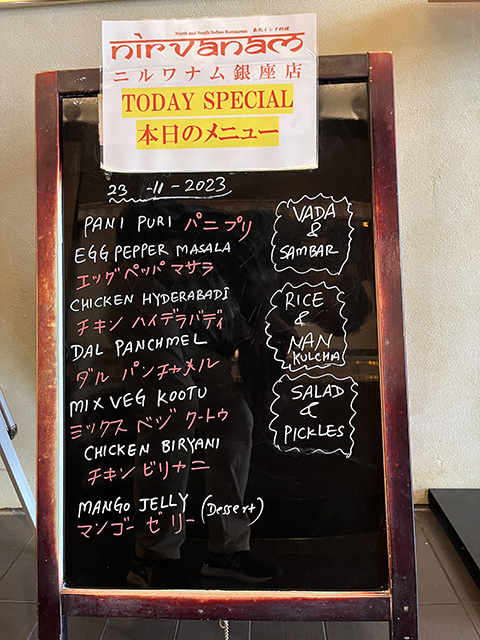 North and South Indian Restaurant 南北インド料理
nirvanam
ニルワナム銀座店
TODAY SPECIAL
本日のメニュー
23-11-2023
PANI PURI パニプリ
EGG PEPPER MASALA
エッグペッパ マサラ
CHICKEN HYDERABADI
チキン ハイデラバディ
DAL PANCHMEL
ダル パンチャメル
MIX VEG KOOTU
ミックス ベジ クートゥ
CHICKEN BIRYANI
チキン ビリヤニ
MANGO JELLY (Dessert)
マンゴー ゼリー
VADA
&
SAMBAR
RICE
&
NAN
KULCHA
SALAD
&
PICKLES